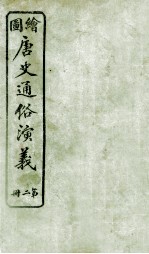 繪圖
唐史通俗演義
第二冊